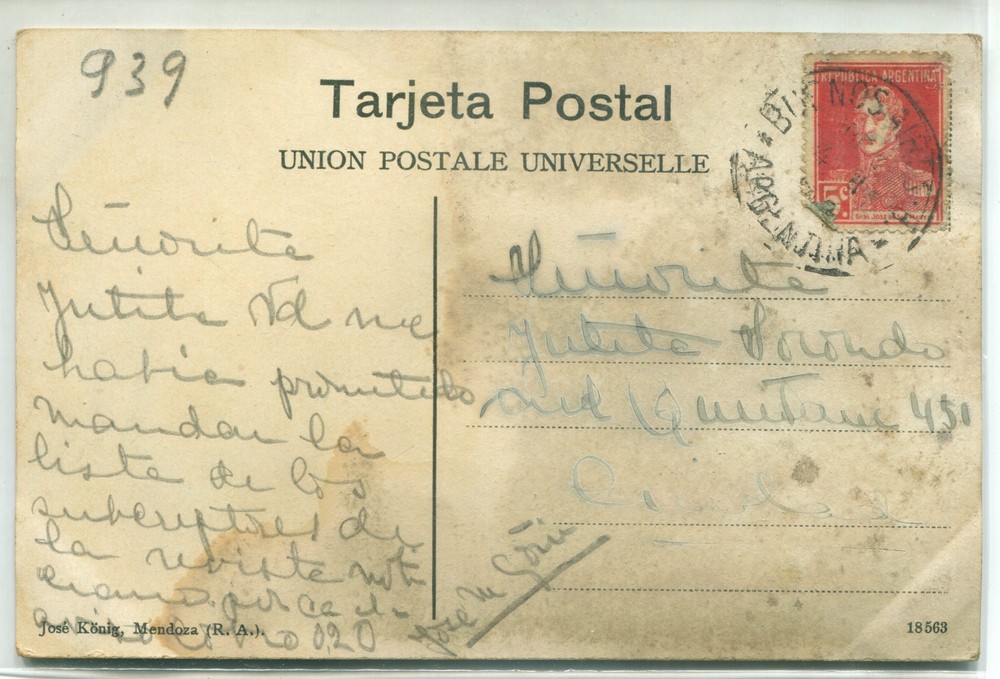 939
Tarjeta Postal
UNION POSTALE UNIVERSELLE
REPUBLICA ARGENTINA
5c.
BUENOS AIRES
ARGENTINA
Señorita
Vd me
habia prometido
mandar la
lista de los
subcriptores de
la revista
José M Goñi
Señorita
Sorondo
Quintana 451
José König, Mendoza (R. A.).
18563